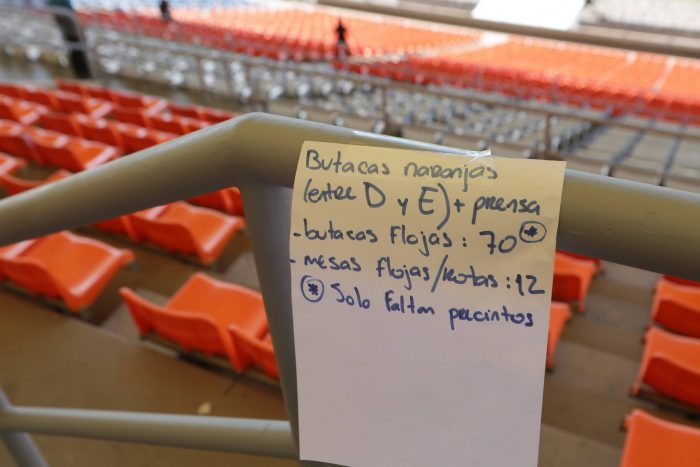 Butacas naranjas
(entre D y E) + prensa
- butacas flojas: 70 *
- mesas flojas/rotas: 12
* Solo faltan precintos